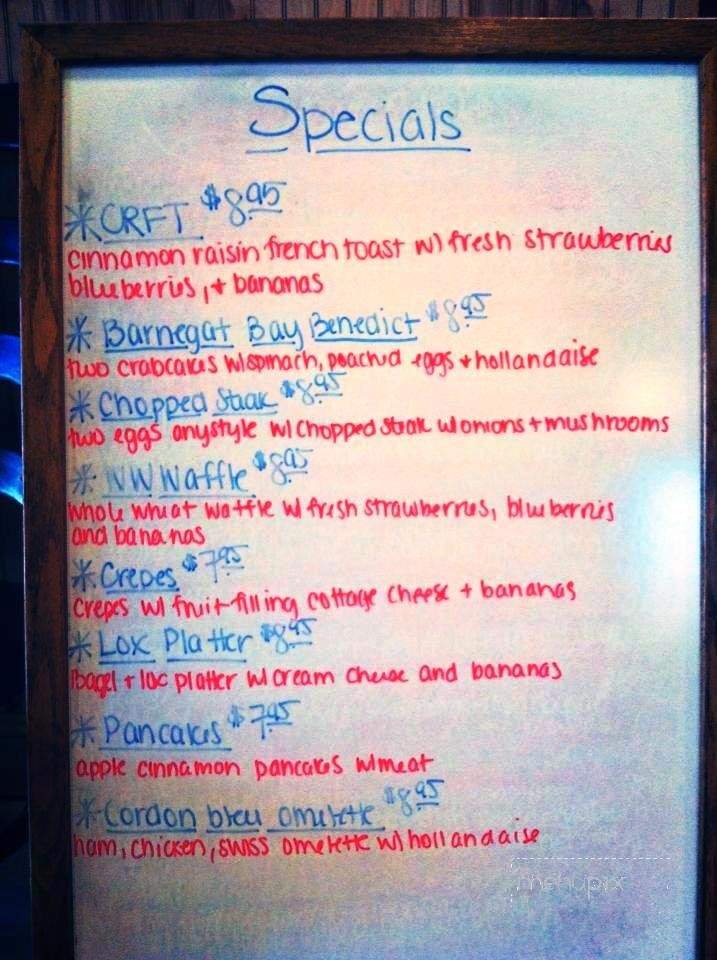 Specials
*CRFT $8.95
cinnamon raisin french toast w/ fresh strawberries
blueberries, + bananas
* Barnegat Bay Benedict $8.95
two crabcakes w/spinach, poached eggs + hollandaise
* Chopped Steak $8.95
two eggs anystyle w/ Chopped Steak w/onions + mushrooms
* WW Waffle $8.95
whole wheat waffle w/ fresh strawberries, blueberries
and bananas
* Crepes $7.95
crepes w/ fruit-filling cottage cheese + bananas
* Lox Platter $8.95
Bagel + lox platter w/ cream cheese and bananas
* Pancakes $7.95
apple cinnamon pancakes w/meat
* Cordon bleu omelette $8.95
ham, chicken, swiss omelette w/ hollandaise
menupix